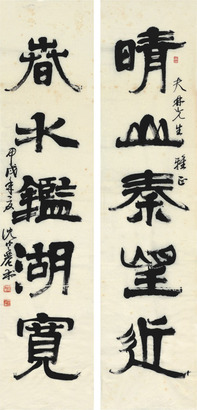 晴山秦望近
夫林先生雅正
春水鑑湖寬
甲戌年夏